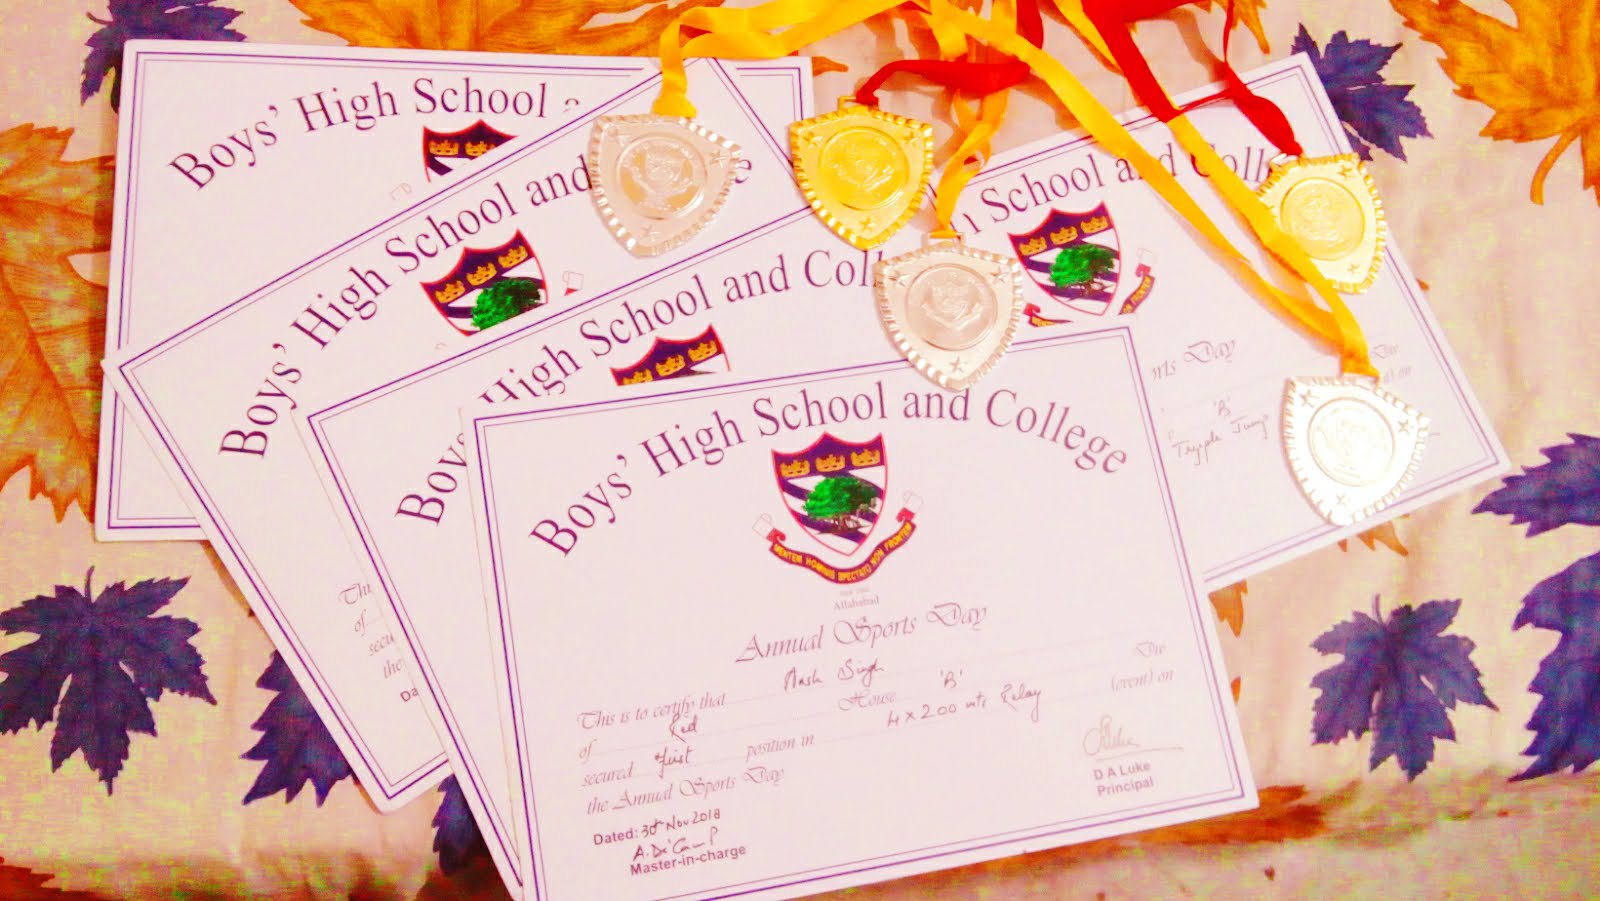 Boys' High School a
Boys' High School and
Boys' High School and Coll
School and Coll
rts Day
Div
'B'
) on
Trypple Jump
This
of
secu
the
Da
Boys' High School and College
MENTEM HOMINIS SPECTATO NON FRONTEM
Allahabad
Annual Sports Day
This is to certify that Mash Singh
of Red House 'B' Div
secured first position in 4 x 200 mts Relay (event) on
the Annual Sports Day
Dated: 30th Nov 2018
Master-in-charge
D A Luke
Principal